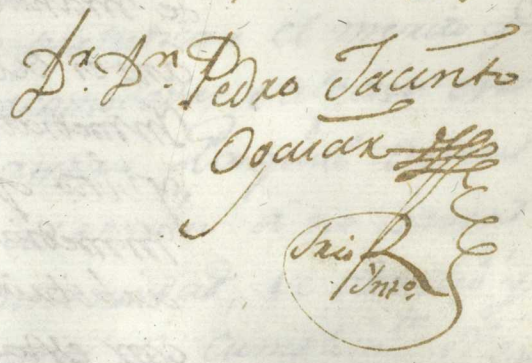 Dr. Dn. Pedro Jacinto
Ogaian
Srio
Into.